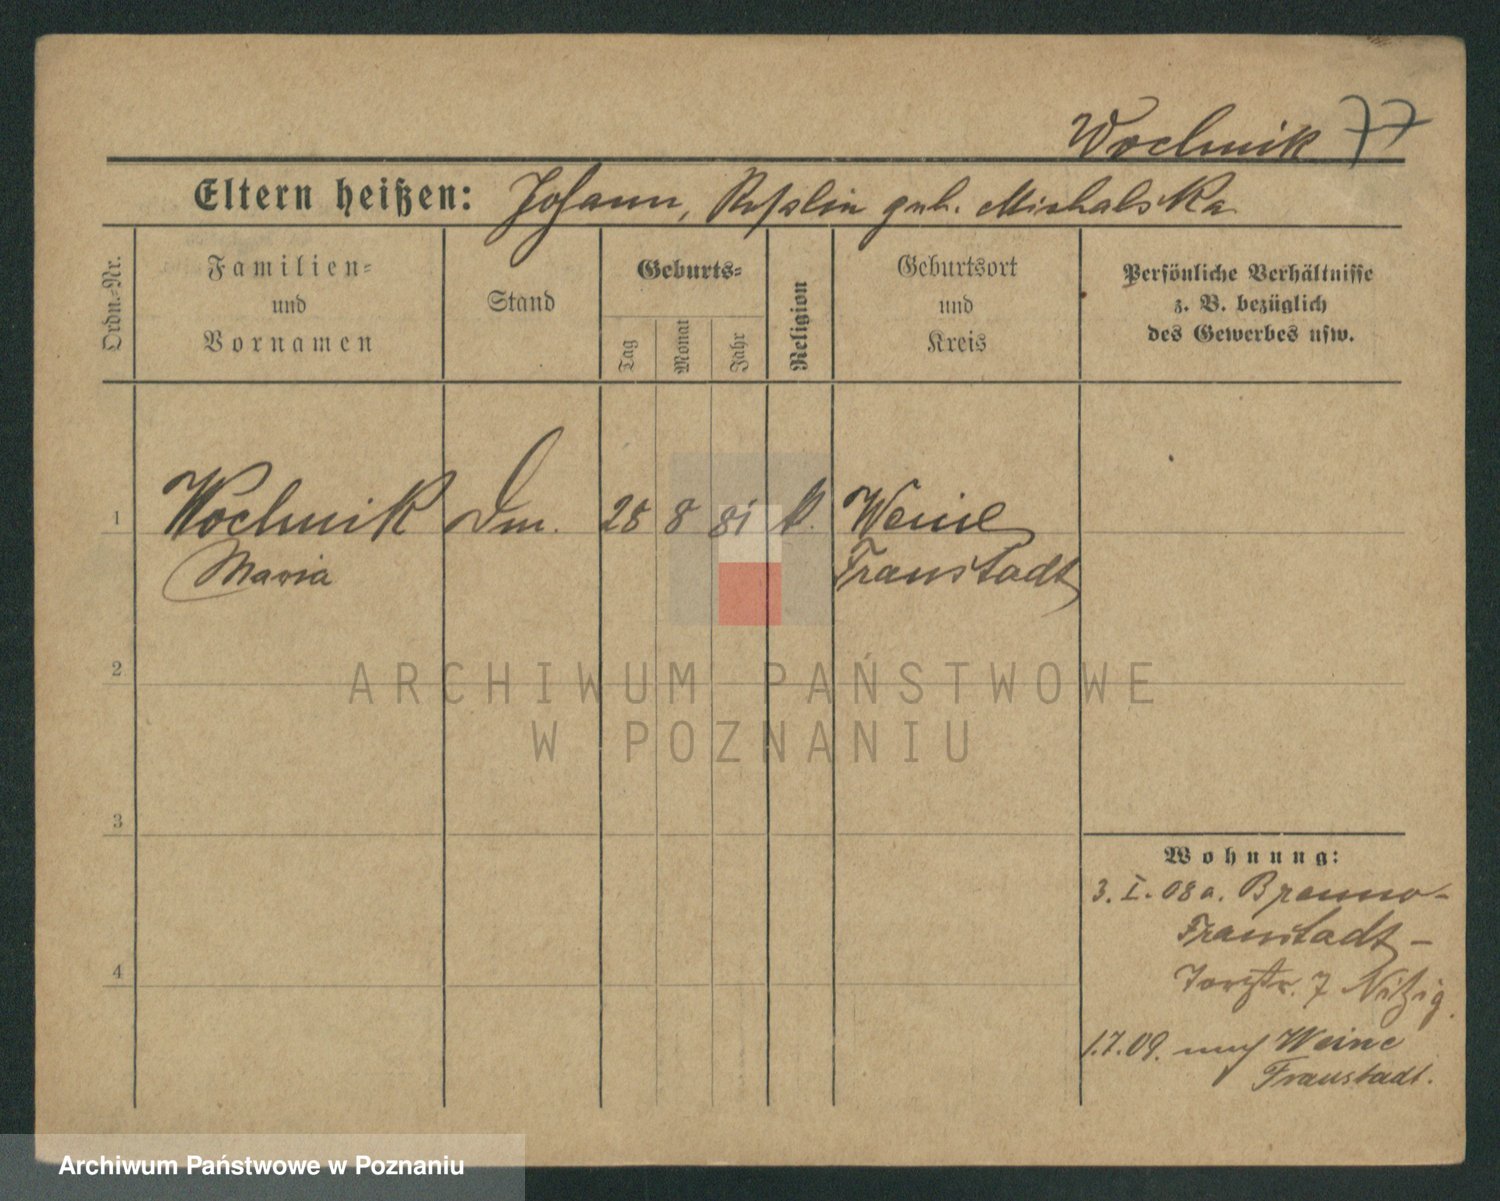 Wochnik 77
Eltern heißen: Johann, Rosalin geb. Michalska
Ordn.-Nr.
Familien-
und
Vornamen
Stand
Geburts-
Tag
Monat
Jahr
Religion
Geburtsort
und
Kreis
Persönliche Verhältnisse
z. B. bezüglich
des Gewerbes usw.
1 Wochnik Dm. 28 8 81 k. Weine
Maria Fraustadt
2
ARCHIWUM PAŃSTWOWE
W POZNANIU
3
Wohnung:
3. I. 08 a.
Fraustadt -
4
7
1.7.09. nach Weine
Fraustadt.
Archiwum Państwowe w Poznaniu